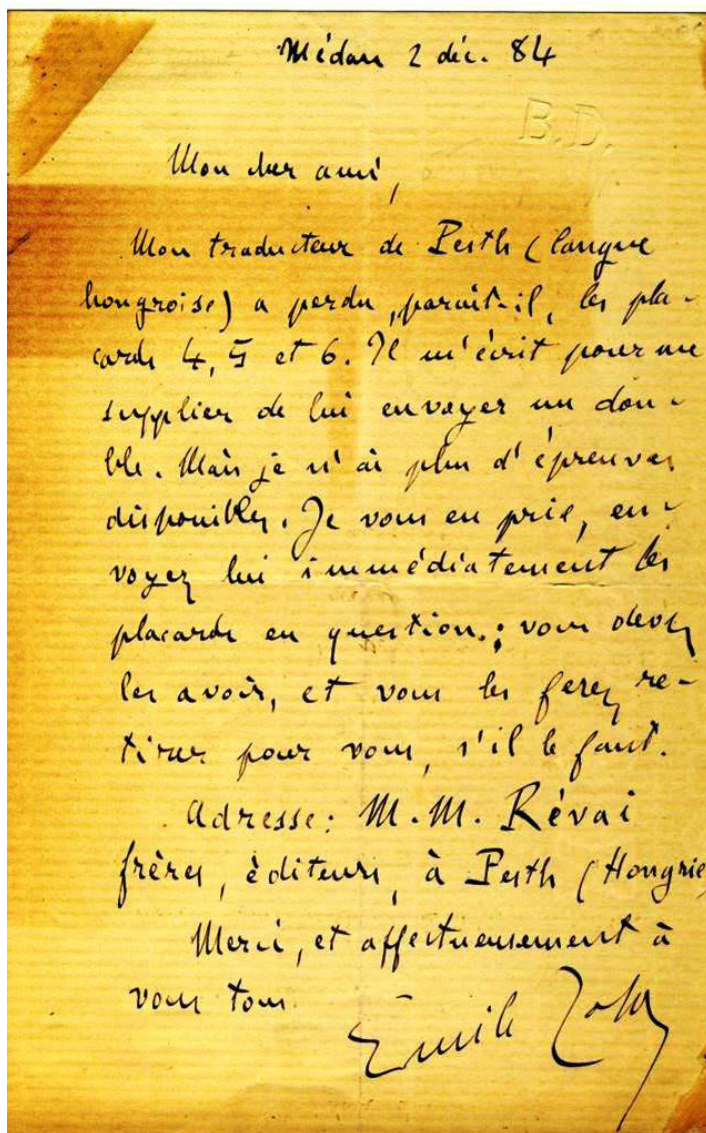 Médan 2 déc. 84
B.D.
Mon cher ami,
Mon traducteur de Pesth (langue
hongroise) a perdu, paraît-il, les pla-
cards 4, 5 et 6. Il m'écrit pour me
supplier de lui envoyer un dou-
ble. Mais je n'ai plus d'épreuves
disponibles. Je vous en prie, en-
voyez lui immédiatement les
placards en question.; vous devez
les avoir, et vous les ferez re-
tirer pour vous, s'il le faut.
Adresse: M.M. Révai
frères, éditeurs, à Pesth (Hongrie)
Merci, et affectueusement à
vous tous.
Emile Zola